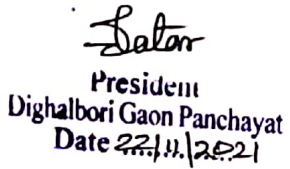 President
Dighalbori Gaon Panchayat
Date 22/11/2021